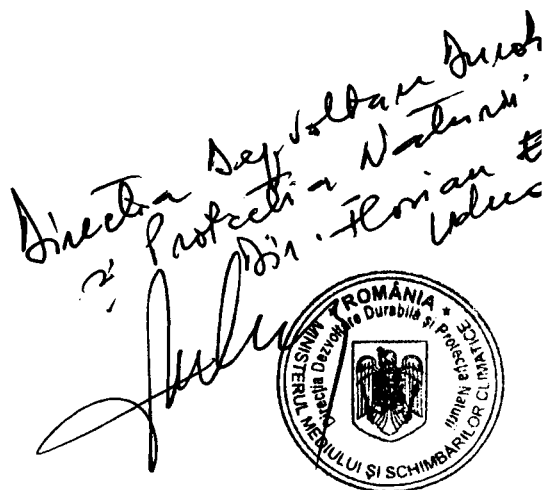 Direcția Dezvoltare
și Protecția Naturii
Dir. Florian
ROMÂNIA
MINISTERUL MEDIULUI ȘI SCHIMBĂRILOR CLIMATICE
Direcția Dezvoltare Durabilă și Protecția Naturii